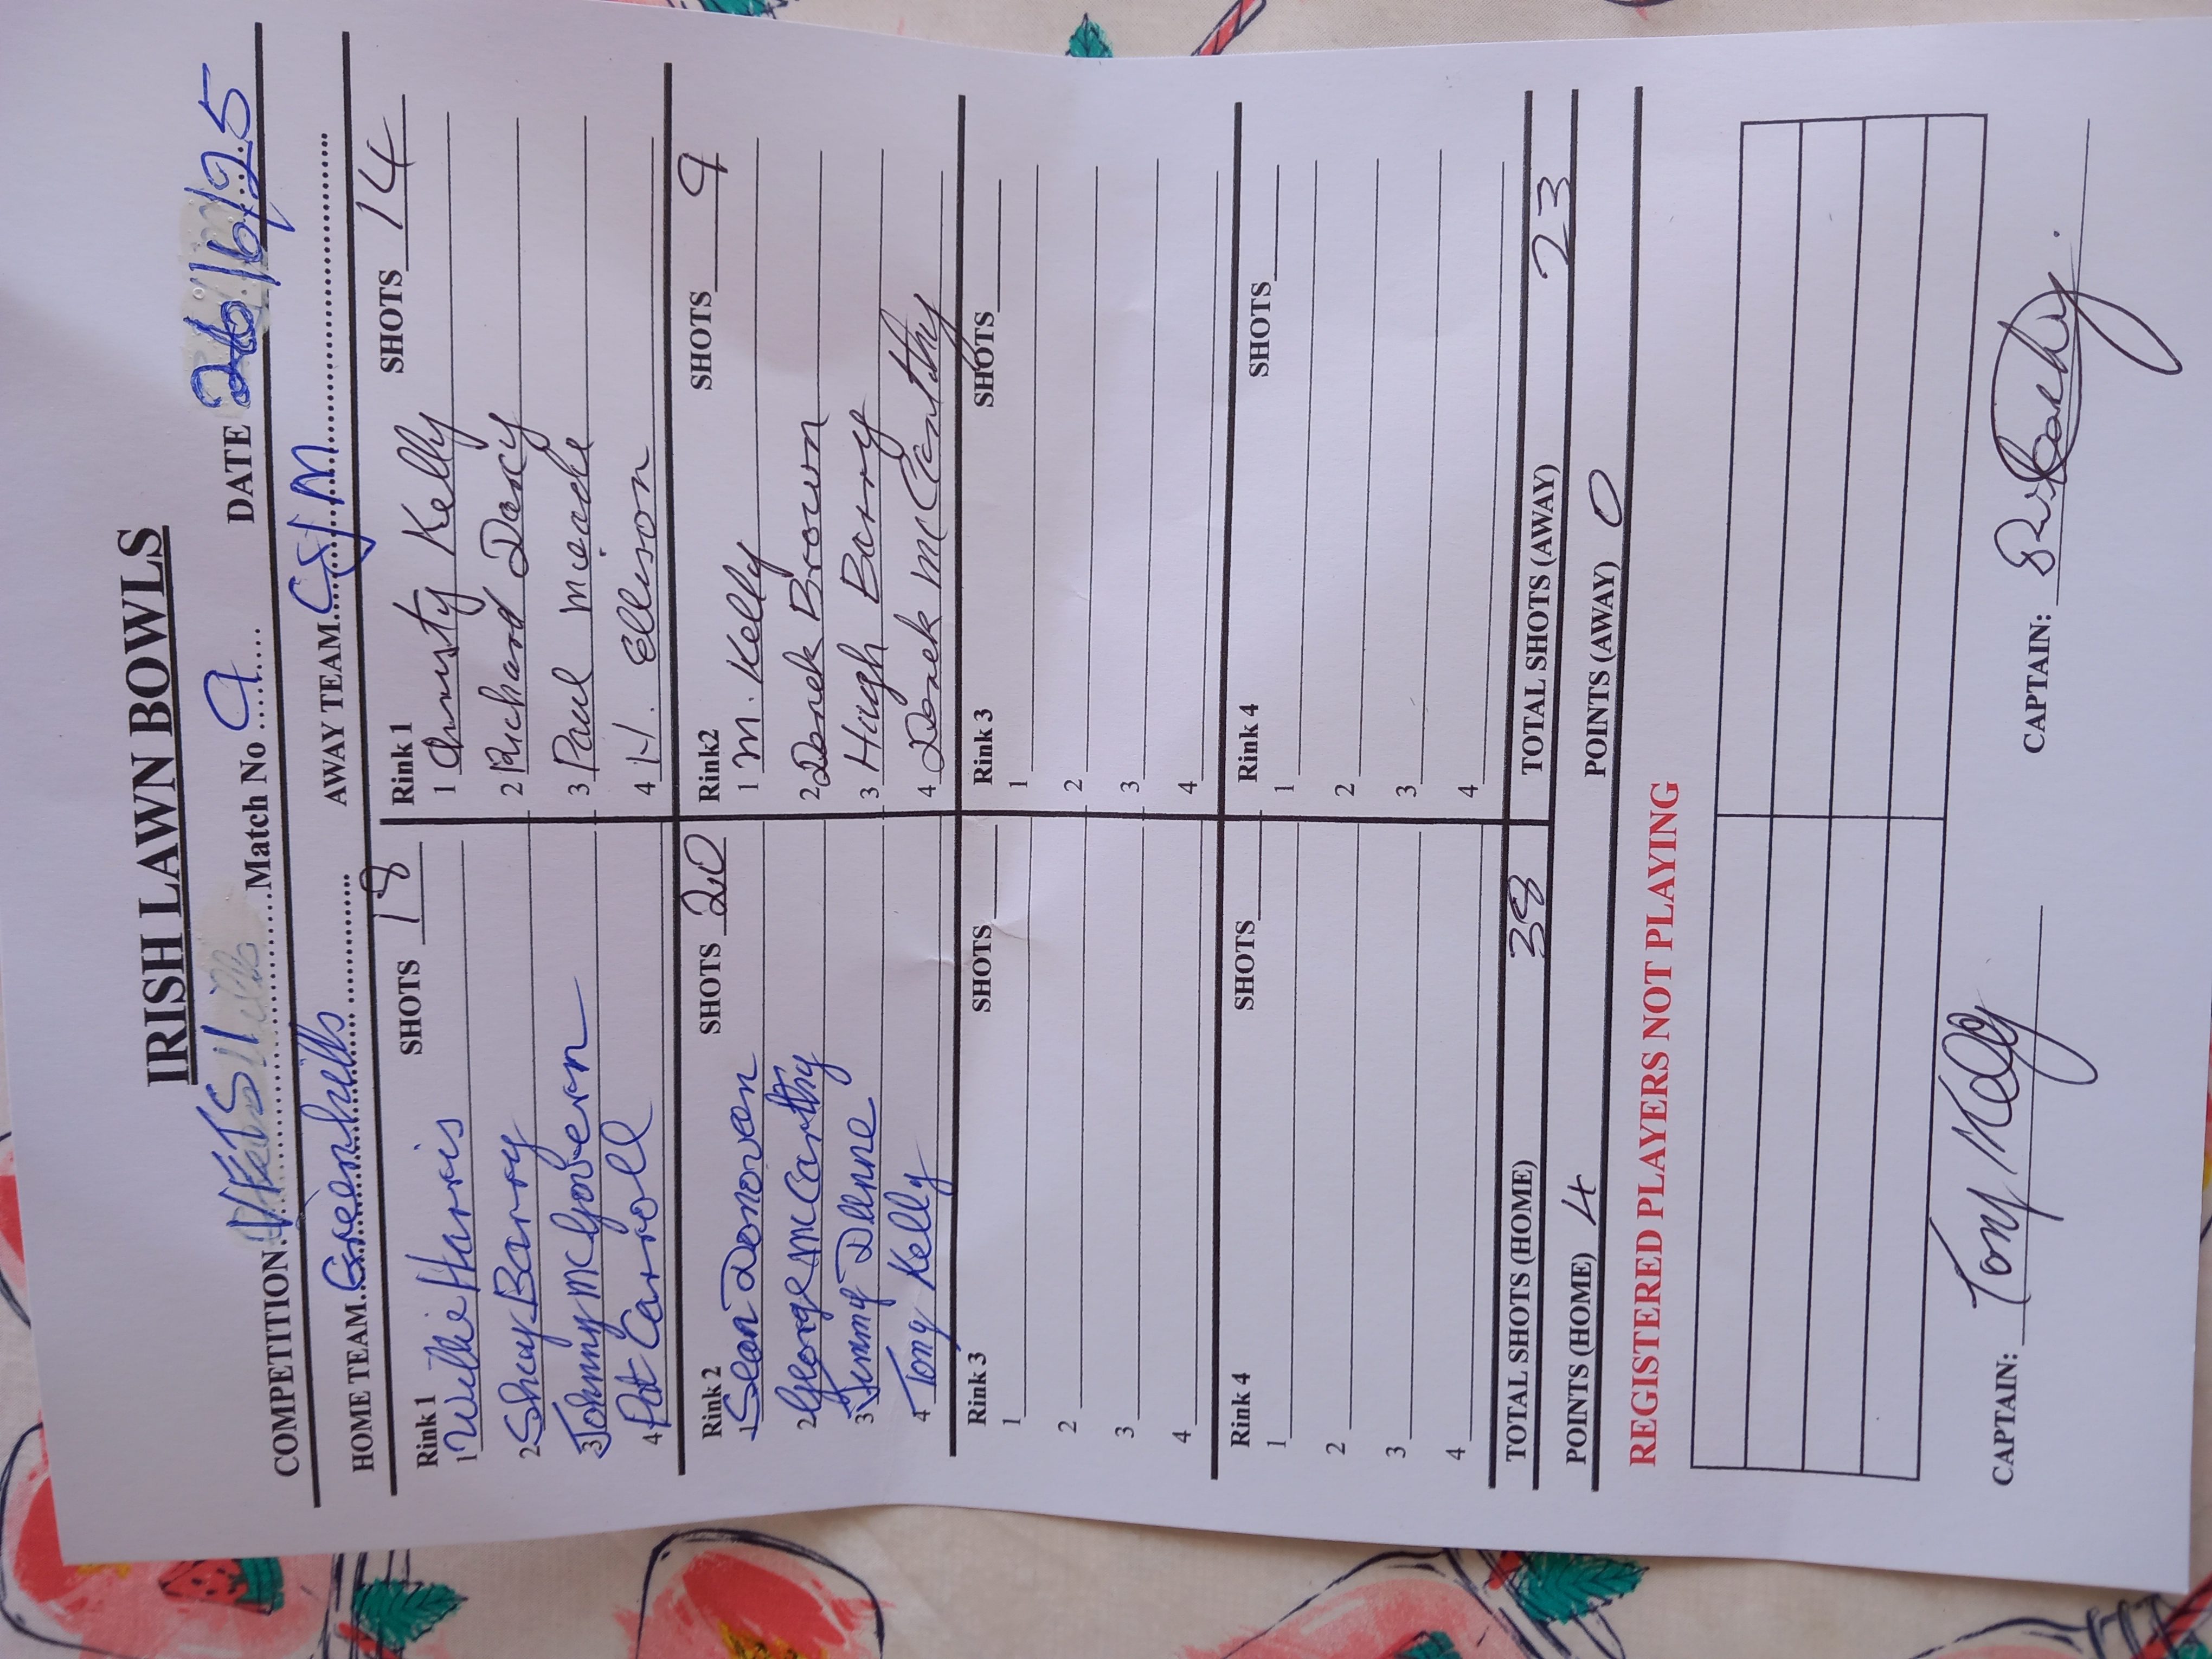 IRISH LAWN BOWLS
COMPETITION Match No 9 DATE 26/6/25
HOME TEAM Greenhills AWAY TEAM
Rink 1 SHOTS 18 Rink 1 SHOTS 14
1 Willie Harris 1 Christy Kelly
2 Shay Barry 2 Richard Darcy
3 Johnny McGovern 3 Paul
4 Pat Carroll 4 H. Ellison
Rink 2 SHOTS 20 Rink2 SHOTS 9
1 Sean Donovan 1 M. Kelly
2 George McCarthy 2 Derek Brown
3 Jimmy Dunne 3 Hugh Barry
4 Tony Kelly 4 Derek McCarthy
Rink 3 SHOTS Rink 3 SHOTS
1 1
2 2
3 3
4 4
Rink 4 SHOTS Rink 4 SHOTS
1 1
2 2
3 3
4 4
TOTAL SHOTS (HOME) 38 TOTAL SHOTS (AWAY) 23
POINTS (HOME) 4 POINTS (AWAY) 0
REGISTERED PLAYERS NOT PLAYING
CAPTAIN: Tony Kelly CAPTAIN: